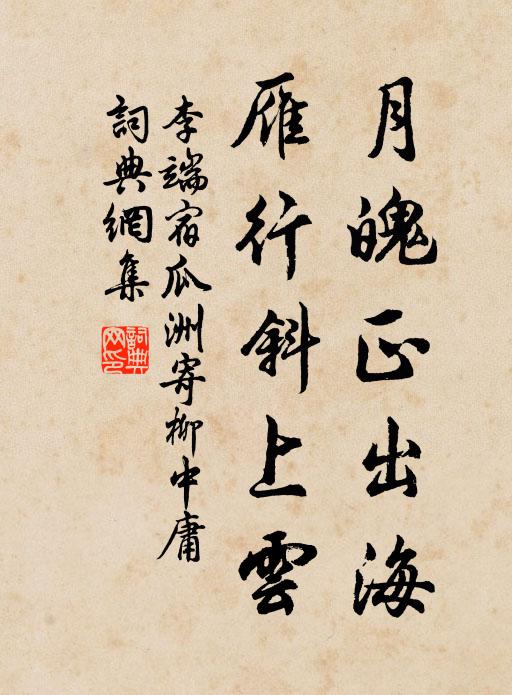 月魄正出海
雁行斜上雲
李端宿瓜洲寄柳中庸
詞典網集
詞典網印